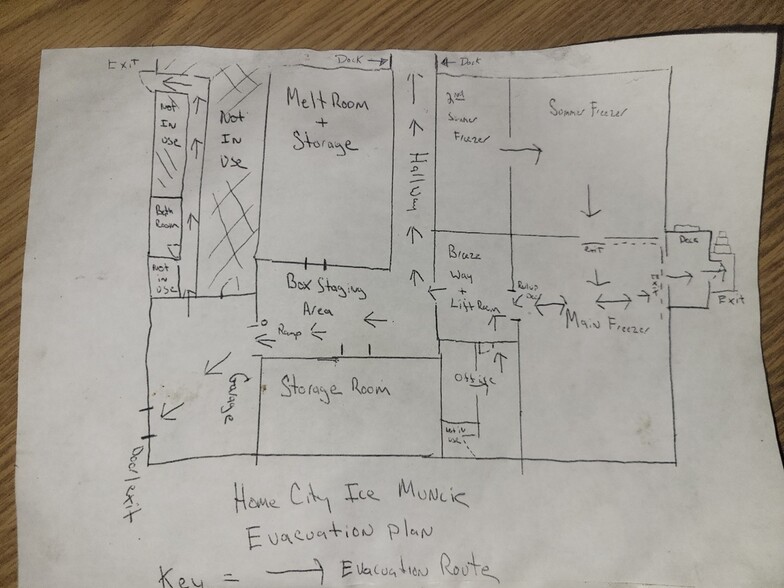 Exit
Dock
Dock
Not
In
Use
Not
In
Use
Melt Room
+
Storage
Hallway
2nd
Summer
Freezer
Summer Freezer
Bath
Room
Not
in
use
Breeze
Way
+
Lift Room
Exit
Exit
Dock
Exit
Box Staging
Area
Ramp
Main Freezer
Garage
Storage Room
Office
Not in
use
Door/exit
Home City Ice Muncie
Evacuation plan
Key = Evacuation Route